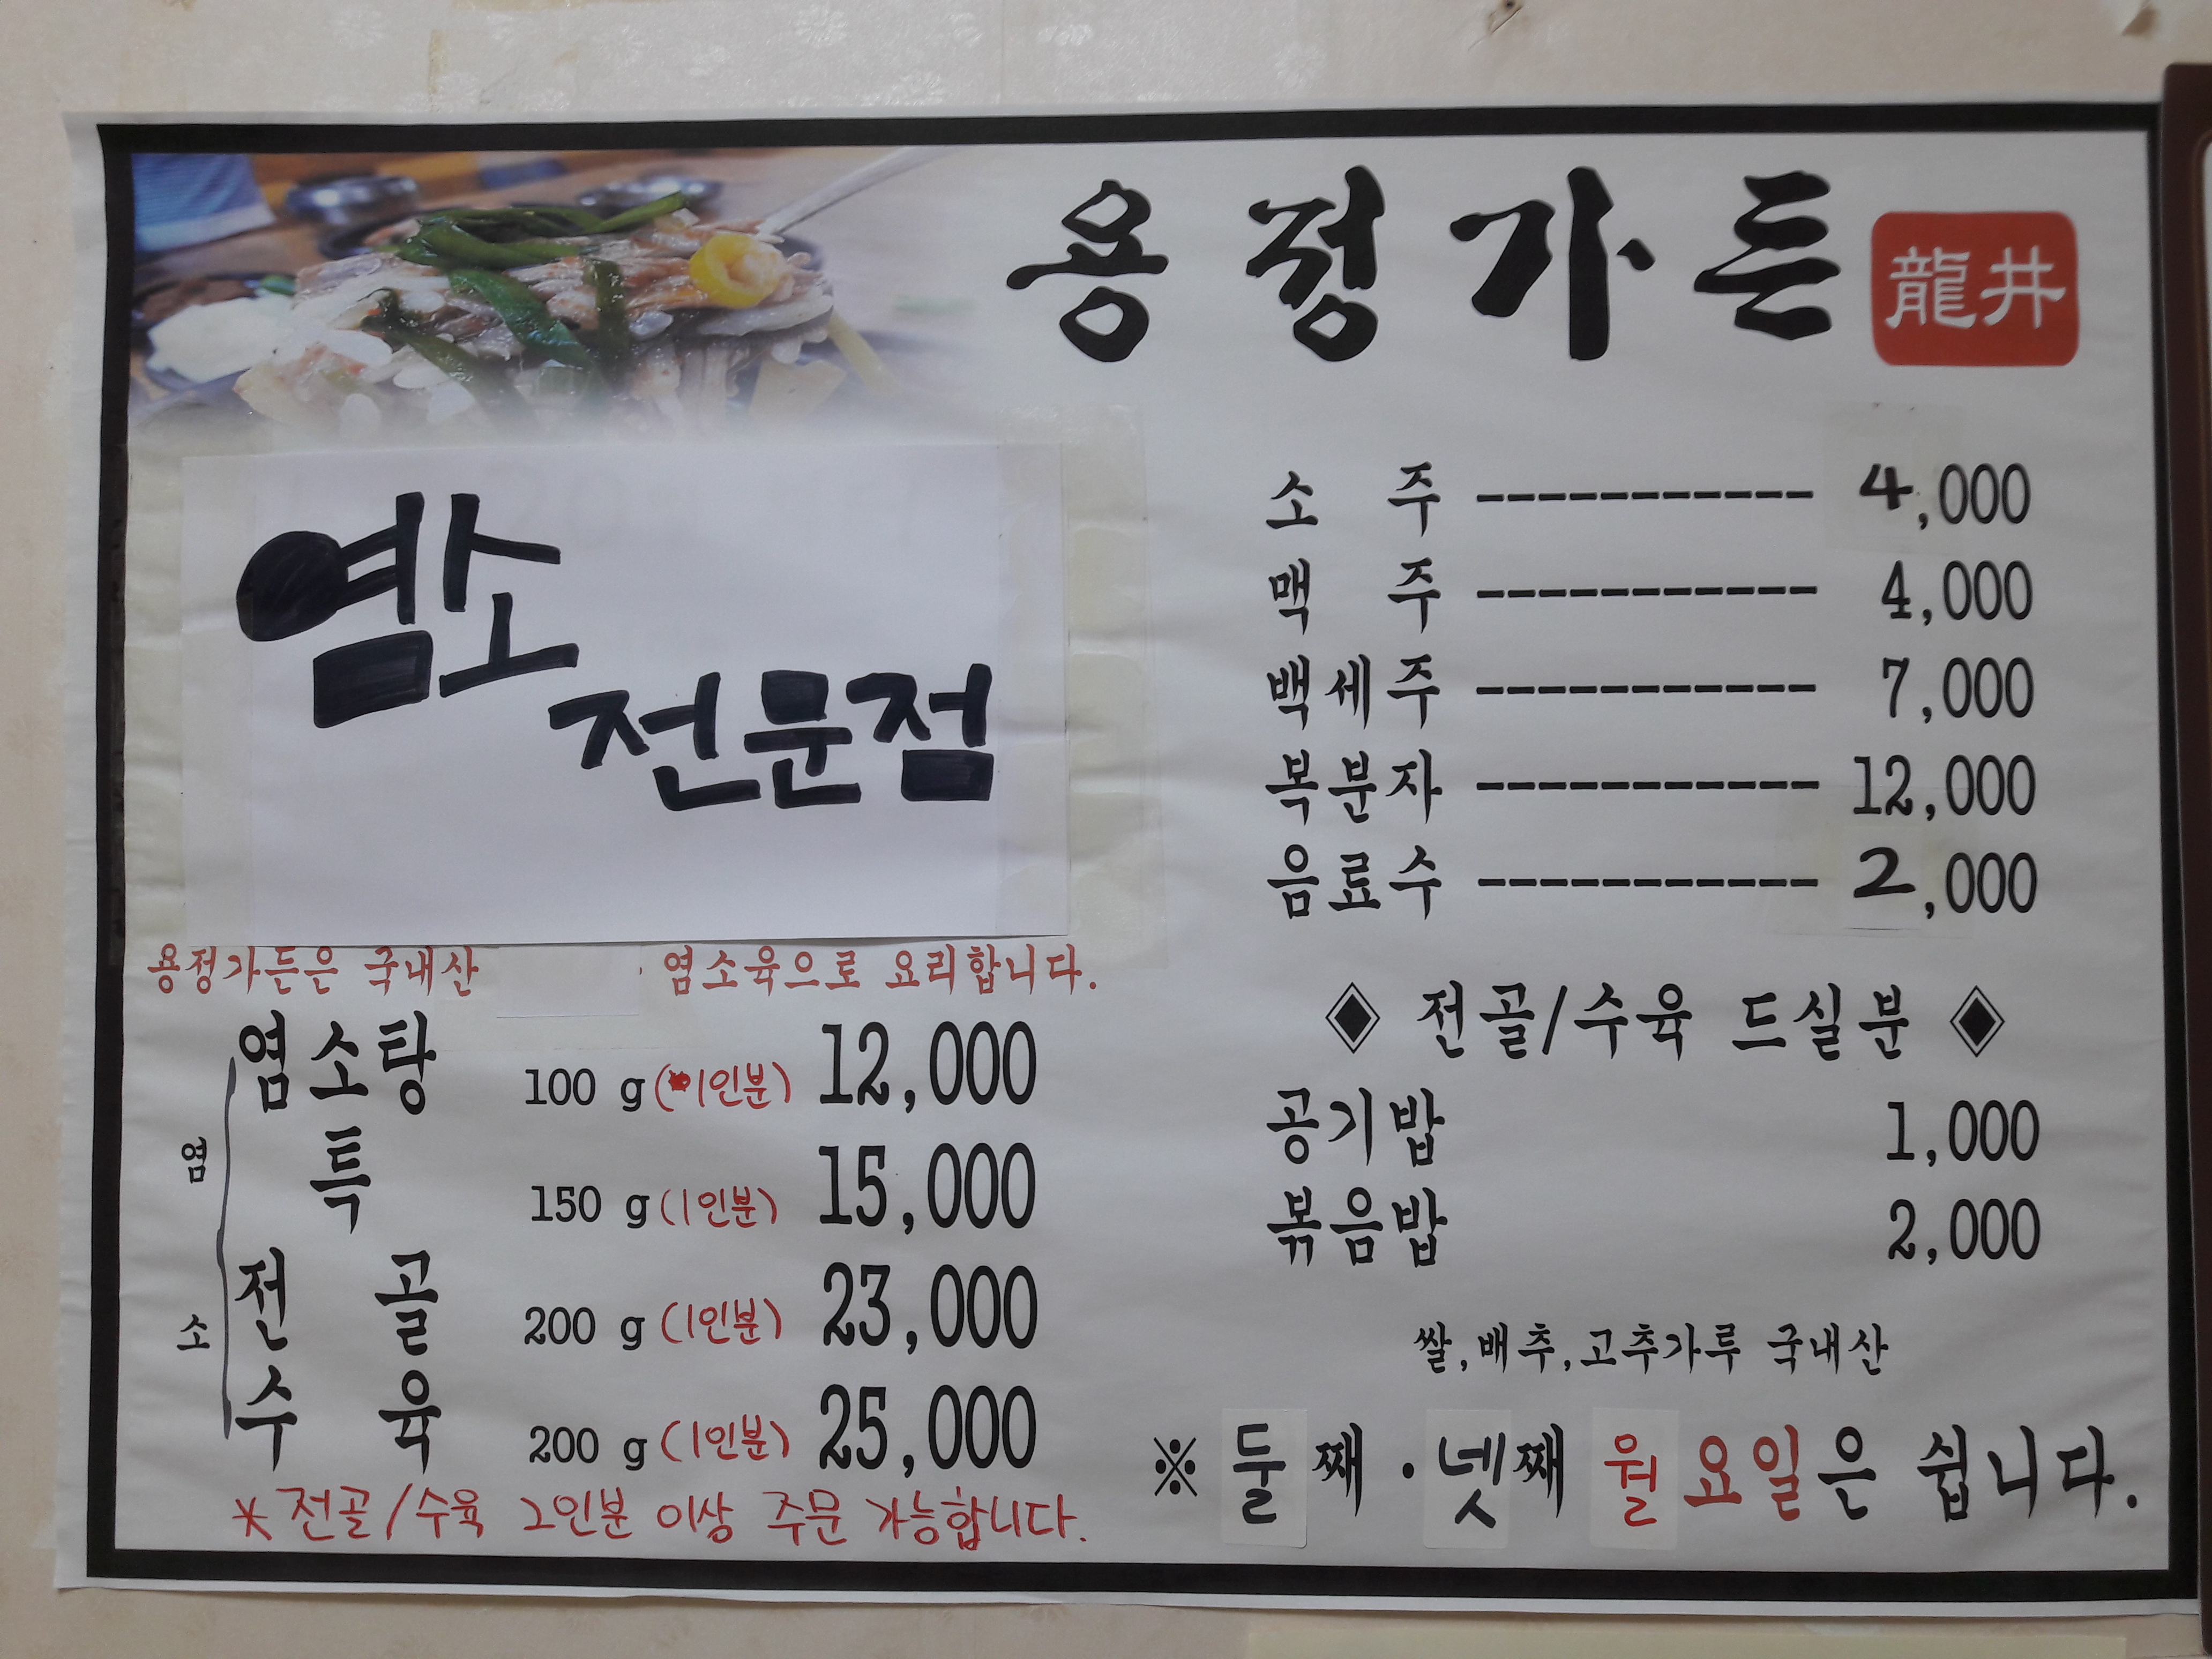 용정가든 龍井
염소
전문점
용정가든은 국내산 염소육으로 요리합니다.
염소
염소탕 100 g (1인분) 12,000
특 150 g (1인분) 15,000
전골 200 g (1인분) 23,000
수육 200 g (1인분) 25,000
* 전골/수육 2인분 이상 주문 가능합니다.
소주 ----------- 4,000
맥주 ----------- 4,000
백세주 ----------- 7,000
복분자 ----------- 12,000
음료수 ----------- 2,000
◈ 전골/수육 드실분 ◈
공기밥 1,000
볶음밥 2,000
쌀,배추,고추가루 국내산
※ 둘째·넷째 월요일은 쉽니다.